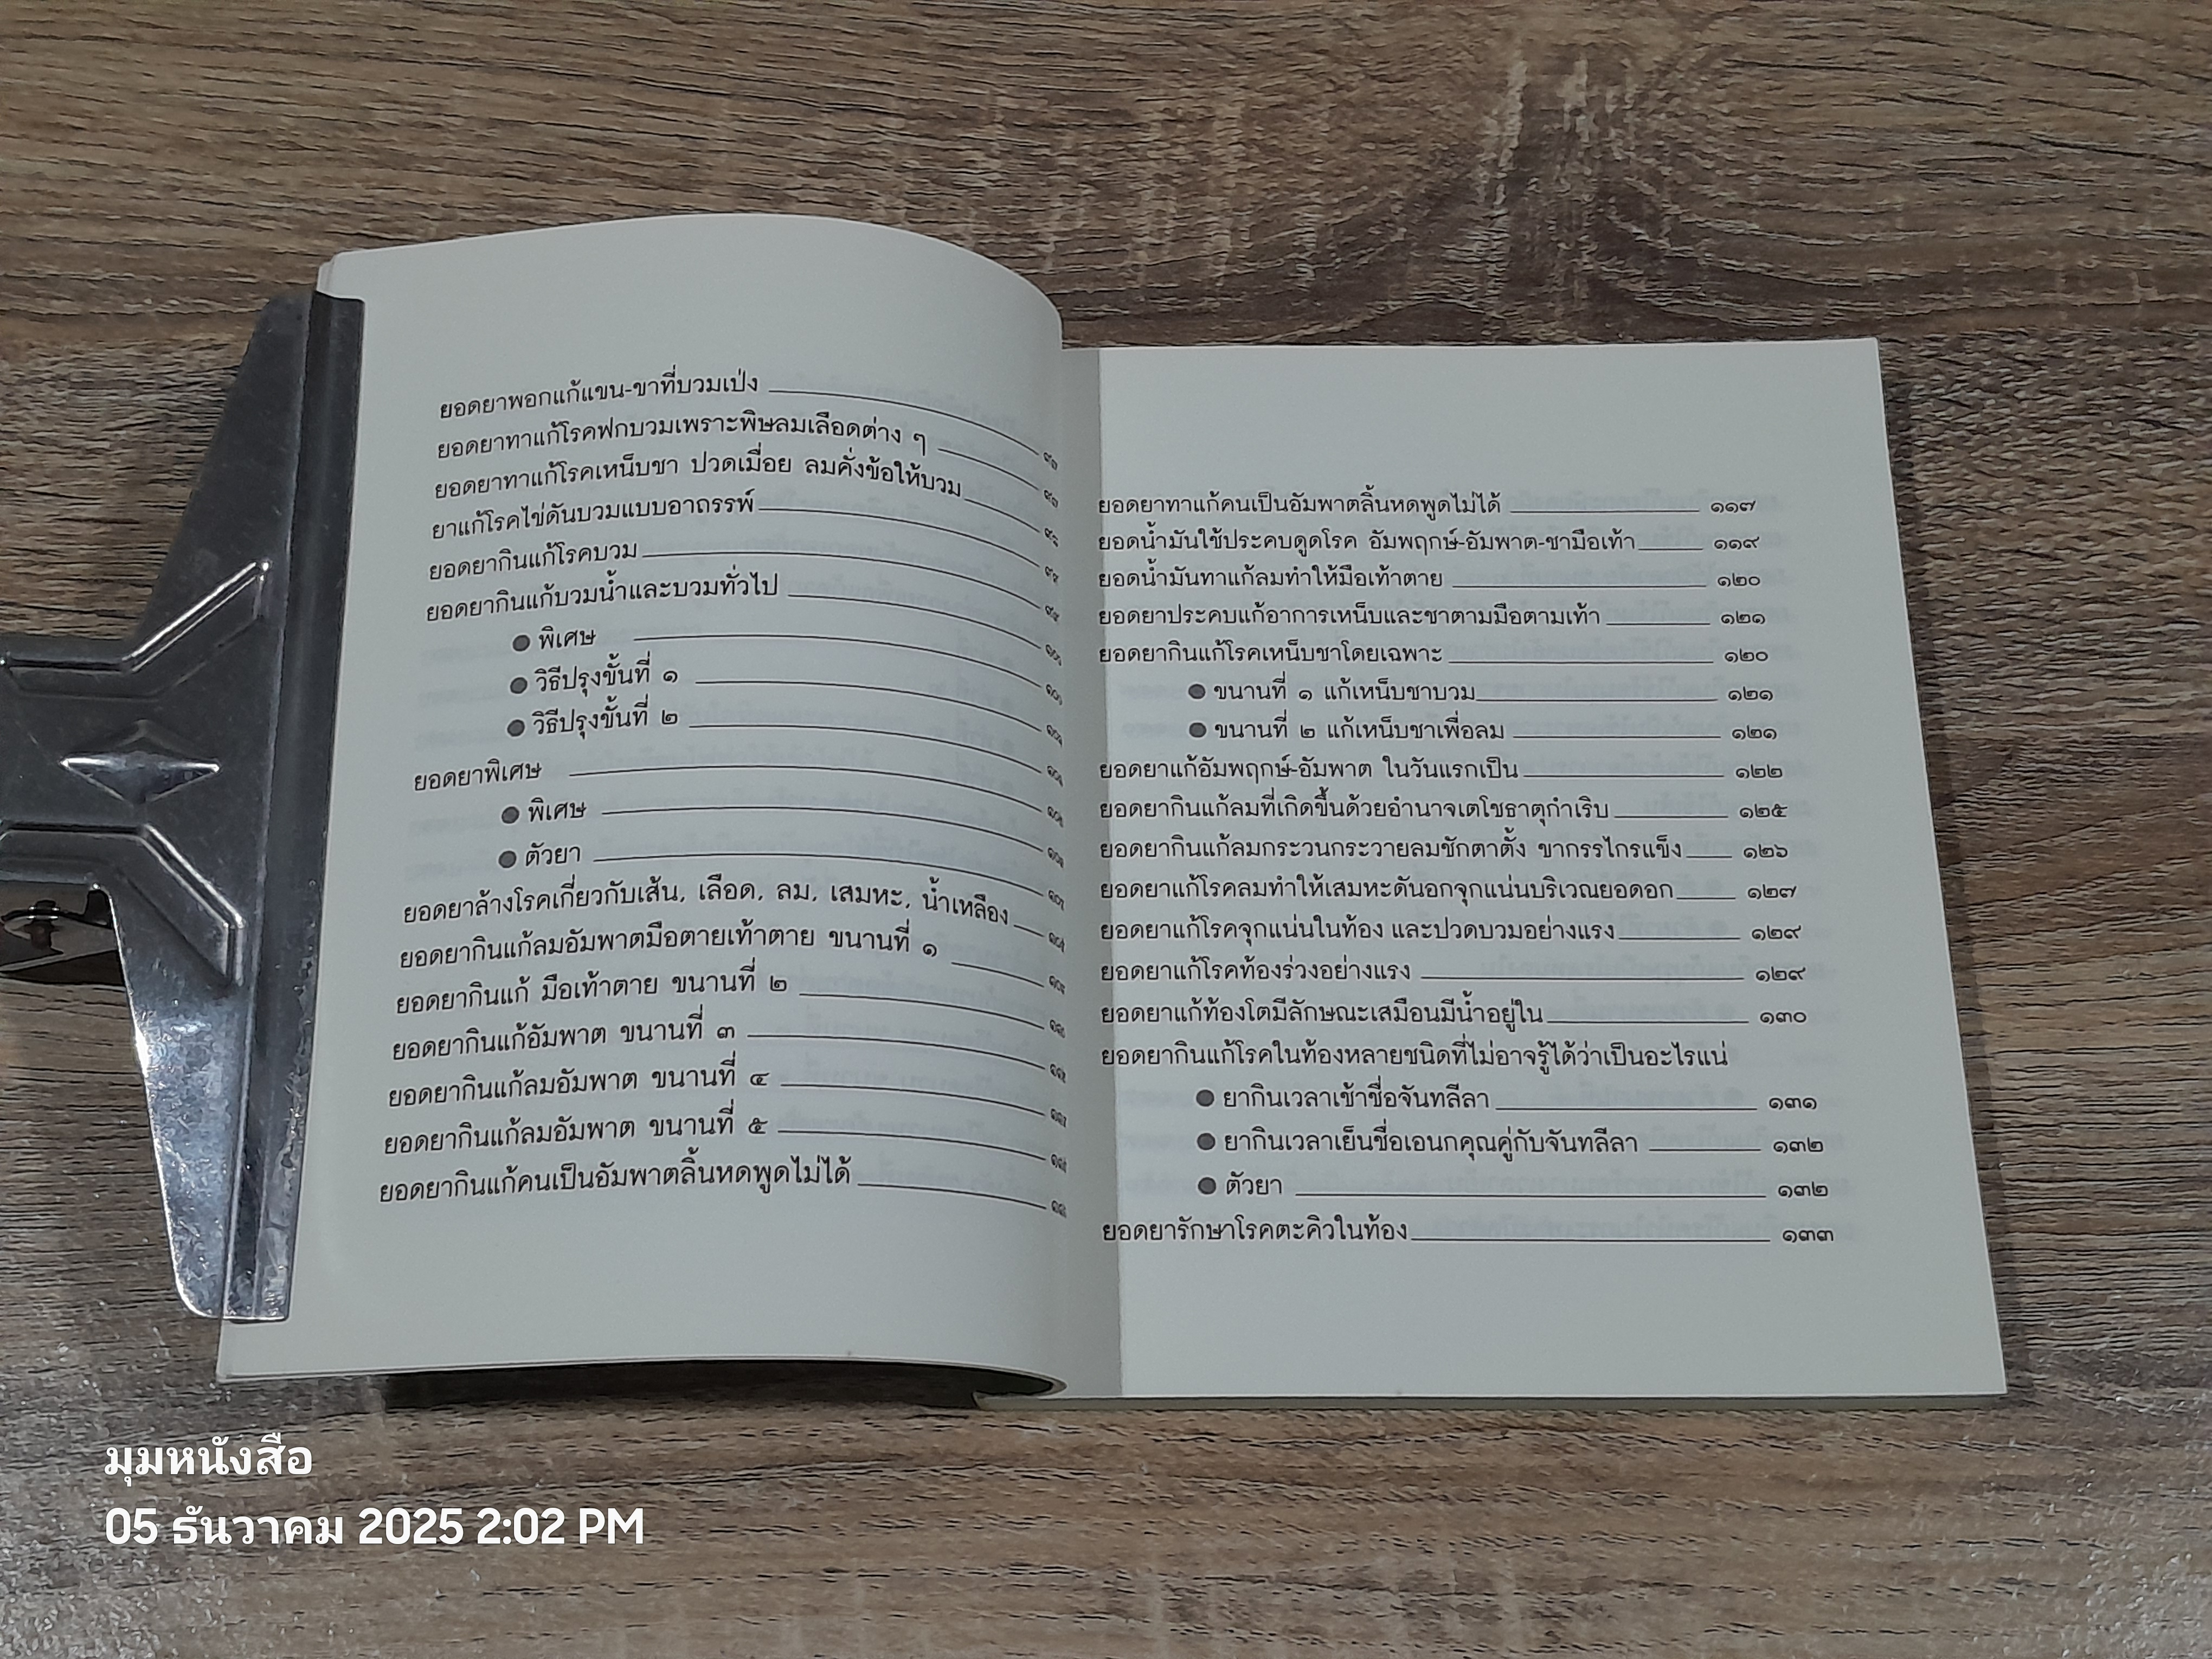 ยอดยาพอกแก้แขน-ขาที่บวมเป่ง
ยอดยาทาแก้โรคฟกบวมเพราะพิษลมเลือดต่าง ๆ
ยอดยาทาแก้โรคเหน็บชา ปวดเมื่อย ลมคั่งข้อให้บวม
ยาแก้โรคไข่ดันบวมแบบอาถรรพ์
ยอดยากินแก้โรคบวม
ยอดยากินแก้บวมน้ำและบวมทั่วไป
● พิเศษ
● วิธีปรุงขั้นที่ ๑
● วิธีปรุงขั้นที่ ๒
ยอดยาพิเศษ
● พิเศษ
● ตัวยา
ยอดยาล้างโรคเกี่ยวกับเส้น, เลือด, ลม, เสมหะ, น้ำเหลือง
ยอดยากินแก้ลมอัมพาตมือตายเท้าตาย ขนานที่ ๑
ยอดยากินแก้ มือเท้าตาย ขนานที่ ๒
ยอดยากินแก้อัมพาต ขนานที่ ๓
ยอดยากินแก้ลมอัมพาต ขนานที่ ๔
ยอดยากินแก้ลมอัมพาต ขนานที่ ๕
ยอดยากินแก้คนเป็นอัมพาตลิ้นหดพูดไม่ได้
ยอดยาทาแก้คนเป็นอัมพาตลิ้นหดพูดไม่ได้ ๑๑๗
ยอดน้ำมันใช้ประคบดูดโรค อัมพฤกษ์-อัมพาต-ชามือเท้า ๑๑๙
ยอดน้ำมันทาแก้ลมทำให้มือเท้าตาย ๑๒๐
ยอดยาประคบแก้อาการเหน็บและชาตามมือตามเท้า ๑๒๑
ยอดยากินแก้โรคเหน็บชาโดยเฉพาะ ๑๒๐
● ขนานที่ ๑ แก้เหน็บชาบวม ๑๒๑
● ขนานที่ ๒ แก้เหน็บชาเพื่อลม ๑๒๑
ยอดยาแก้อัมพฤกษ์-อัมพาต ในวันแรกเป็น ๑๒๒
ยอดยากินแก้ลมที่เกิดขึ้นด้วยอำนาจเตโชธาตุกำเริบ ๑๒๕
ยอดยากินแก้ลมกระวนกระวายลมชักตาตั้ง ขากรรไกรแข็ง ๑๒๖
ยอดยาแก้โรคลมทำให้เสมหะดันอกจุกแน่นบริเวณยอดอก ๑๒๗
ยอดยาแก้โรคจุกแน่นในท้อง และปวดบวมอย่างแรง ๑๒๙
ยอดยาแก้โรคท้องร่วงอย่างแรง ๑๒๙
ยอดยาแก้ท้องโตมีลักษณะเสมือนมีน้ำอยู่ใน ๑๓๐
ยอดยากินแก้โรคในท้องหลายชนิดที่ไม่อาจรู้ได้ว่าเป็นอะไรแน่
● ยากินเวลาเช้าชื่อจันทลีลา ๑๓๑
● ยากินเวลาเย็นชื่อเอนกคุณคู่กับจันทลีลา ๑๓๒
● ตัวยา ๑๓๒
ยอดยารักษาโรคตะคิวในท้อง ๑๓๓
มุมหนังสือ
05 ธันวาคม 2025 2:02 PM